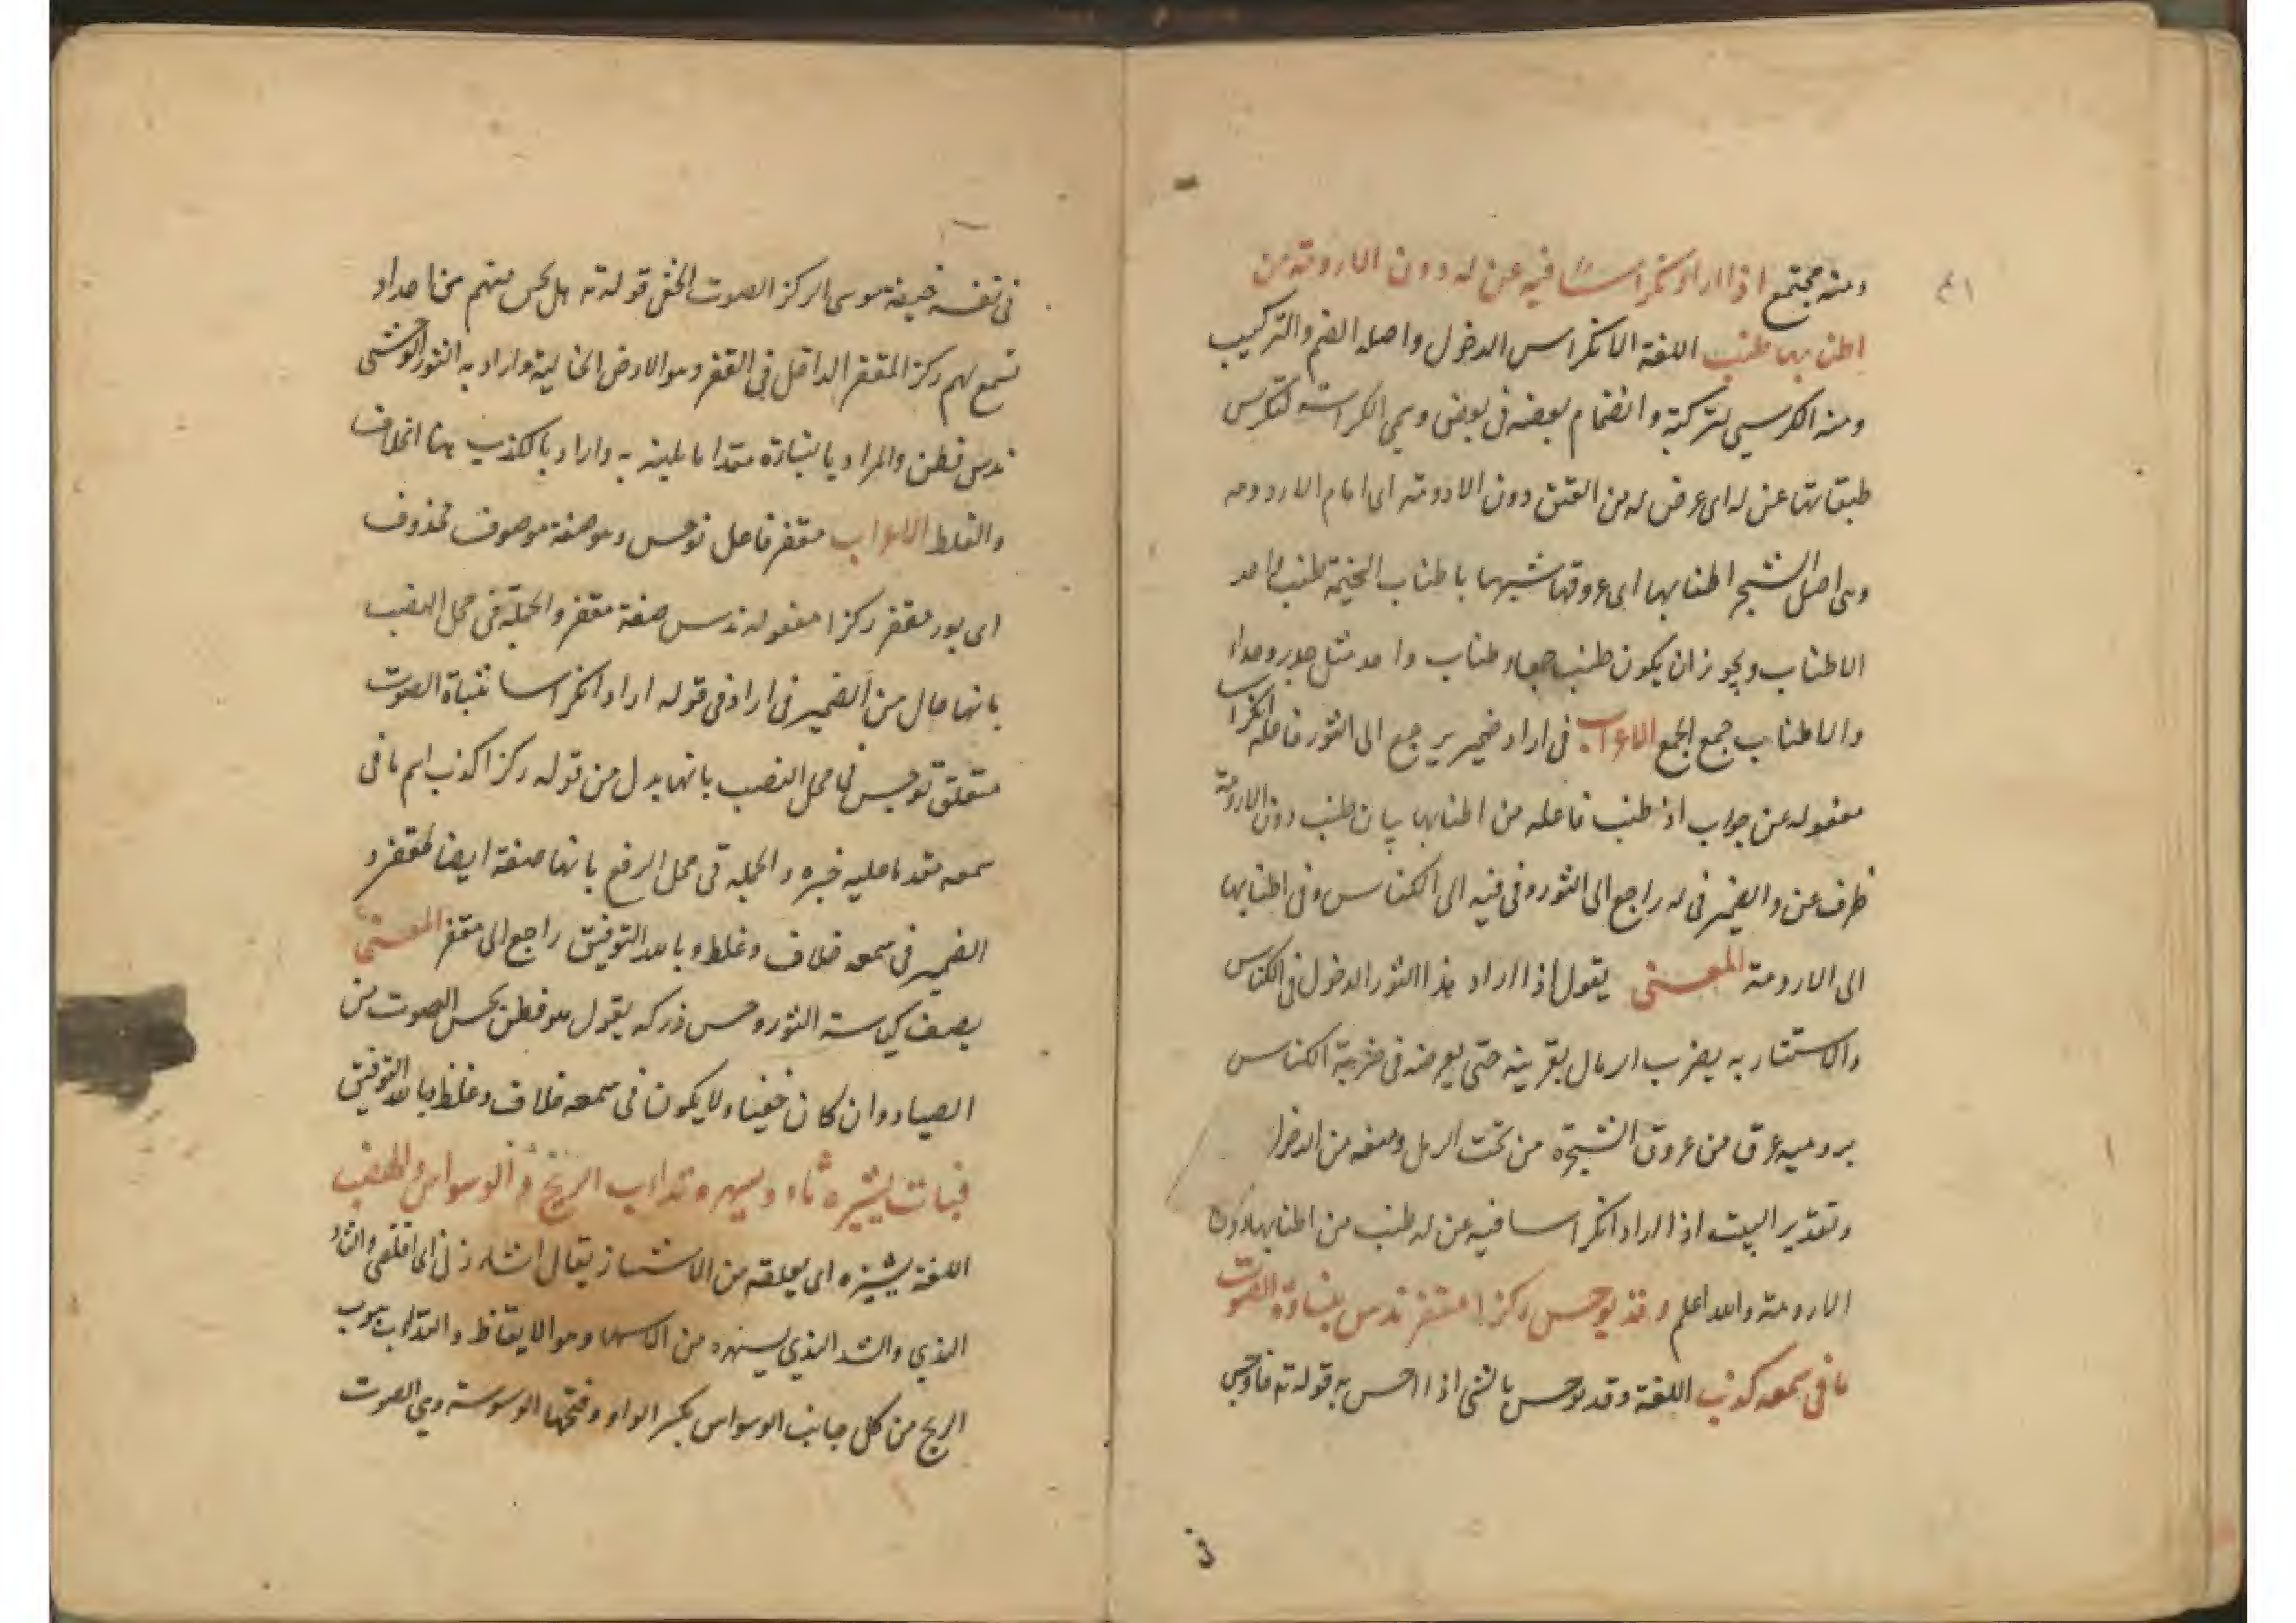 ومنه مجتمع اذا اراد انكراسا فيه عن له دون الارومة من
اطنابها طنب اللغة الانكراس الدخول واصله الضم والتركيب
ومنه الكرسي لتركبه وانضمام بعضه فى بعض وهي الكراسة لتكرس
طبقاتها عن له اى عرض له من العنن دون الارومة اى امام الارومه
وهى اصل الشجر اطنابها اى عروقها شبهها باطناب الخيمة طنب واحد
الاطناب ويجوز ان يكون طنب جمعا وطناب واحد مثل جدر وجدار
والاطناب جمع الجمع الاعراب فى اراد ضمير يرجع الى الثور فاعله انكراسا
مفعوله عن جواب اذ طنب فاعله من اطنابها بيان طنب دون الارومة
ظرف عن والضمير فى له راجع الى الثور وفى فيه الى الكناس وفى اطنابها
الى الارومة المعنى يقول اذا اراد هذا الثور الدخول فى الكناس
والاستتار به يضرب الرمال بقرينه حتى يعرضه فى ضربة الكناس
بروميه عرق من عروق الشجرة من تحت الرمل ومنعه من الدخول
وتقدير البيت اذا اراد انكراسا فيه عن له طنب من اطنابها دون
الارومة والله اعلم وقد توجس ركزا مقفر ندس بنباءة الصوت
ما فى سمعه كذب اللغة وقد توجس بالشى اذا احس به قوله ته فاوجس
فى نفسه خيفة موسى الركز الصوت الخفى قوله ته هل تحس منهم من احد او
تسمع لهم ركزا المقفر الداخل فى القفر وهو الارض الخالية واراد به الثور الوحشى
ندس فطن والمراد بالنباءة مبتدا ما يليه به واراد بالكذب هنا الخلاف
والغلط الاعراب مقفر فاعل توجس وهو صفة موصوف محذوف
اى ثور مقفر ركزا مفعوله ندس صفة مقفر والجملة فى محل النصب
بانها حال من الضمير فى اراد فى قوله اراد انكراسا بنباة الصوت
متعلق توجس فى محل النصب بانها بدل من قوله ركزا كذب اسم ما فى
سمعه مقدما عليه خبره والجمله فى محل الرفع بانها صفة ايضا لمقفر و
الضمير فى سمعه خلاف وغلط وبالله التوفيق راجع الى مقفر المعنى
يصف كياسة الثور وحس ذركه يقول هو فطن يحس الصوت من
الصياد وان كان خفيا ولا يكون فى سمعه خلاف وغلط وبالله التوفيق
فبات يشئزه ثاد ويسهره تذاءب الريح والوسواس والهضب
اللغة يشئزه اى يقلقه من الاشئاز يقال اشازنى اى اقلقنى والثاد
الندي والثد الندي يسهره من الاسهار وهو الايقاظ والتذاب هبوب
الريح من كل جانب الوسواس بكسر الواو وفتحها الوسوسة وهي الصوت